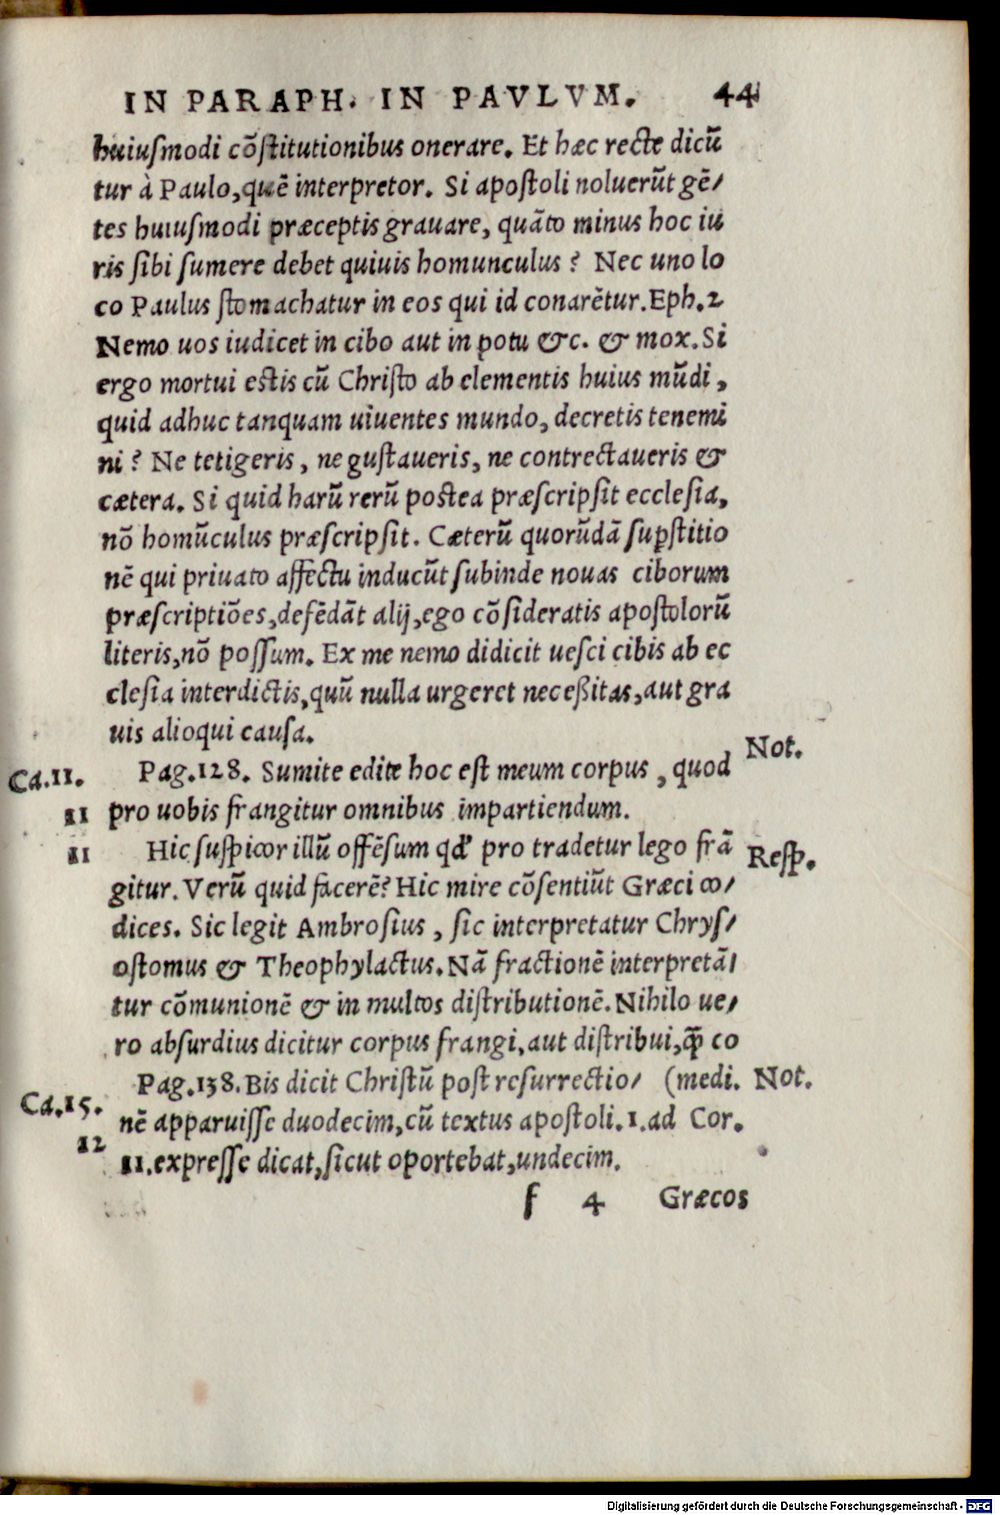 IN PARAPH. IN PAVLVM. 44
huiusmodi cōstitutionibus onerare. Et hæc recte dicū
tur à Paulo, quē interpretor. Si apostoli noluerūt gē/
tes huiusmodi præceptis grauare, quāto minus hoc iu
ris sibi sumere debet quiuis homunculus? Nec uno lo
co Paulus stomachatur in eos qui id conarētur. Eph. 2
Nemo uos iudicet in cibo aut in potu &c. & mox. Si
ergo mortui estis cū Christo ab elementis huius mūdi,
quid adhuc tanquam uiuentes mundo, decretis tenemi
ni? Ne tetigeris, ne gustaueris, ne contrectaueris &
cætera. Si quid harū rerū postea præscripsit ecclesia,
nō homūculus præscripsit. Cæterū quorūdā suꝑstitio
nē qui priuato affectu inducūt subinde nouas ciborum
præscriptiōes, defēdāt alij, ego cōsideratis apostolorū
literis, nō possum. Ex me nemo didicit uesci cibis ab ec
clesia interdictis, quū nulla urgeret neceßitas, aut gra
uis alioqui causa.
Ca. 11. Pag. 128. Sumite edite hoc est meum corpus, quod Not.
11 pro uobis frangitur omnibus impartiendum.
11 Hic suspicor illū offēsum qd' pro tradetur lego frā Resp.
gitur. Verū quid facerē? Hic mire cōsentiūt Græci co/
dices. Sic legit Ambrosius, sic interpretatur Chrys/
ostomus & Theophylactus. Nā fractionē interpretā/
tur cōmunionē & in multos distributionē. Nihilo ue/
ro absurdius dicitur corpus frangi, aut distribui, ꝙ̄ co
Pag. 138. Bis dicit Christū post resurrectio/ (medi. Not.
Ca. 15. nē apparuisse duodecim, cū textus apostoli. 1. ad Cor.
12 11. expresse dicat, sicut oportebat, undecim.
f 4 Græcos
Digitalisierung gefördert durch die Deutsche Forschungsgemeinschaft - DFG